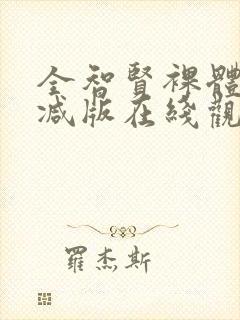 全智賢裸體
减版在綫觀
羅杰斯